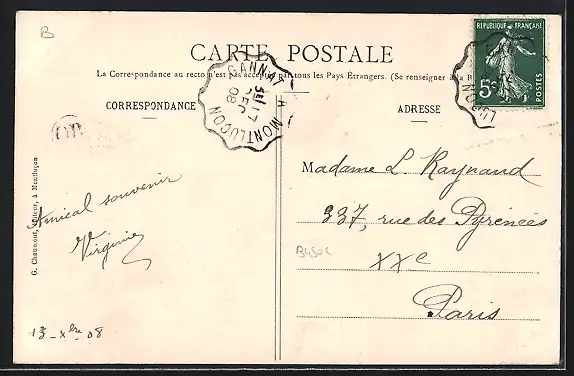 B
CARTE POSTALE
La Correspondance au recto n'est pas acceptée par tous les Pays Étrangers. (Se renseigner à la
CORRESPONDANCE
ADRESSE
GANNAT A MONTLUCON
17
DEC
08
REPUBLIQUE FRANÇAISE
5c
POSTES
OR
G. Chaumont, Éditeur, à Montluçon
Amical souvenir
Virginie
13 - Xbre 08
Madame L. Raynaud
337, rue des Pyrénées
XXe
Paris